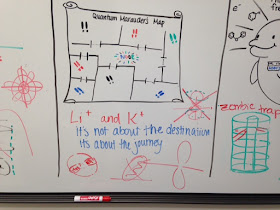 Quantum Marauder's Map
!!
!!
!!
!!
!!
!!
Li⁺ and K⁺
It's not about the destination
its about the journey
zombie trap